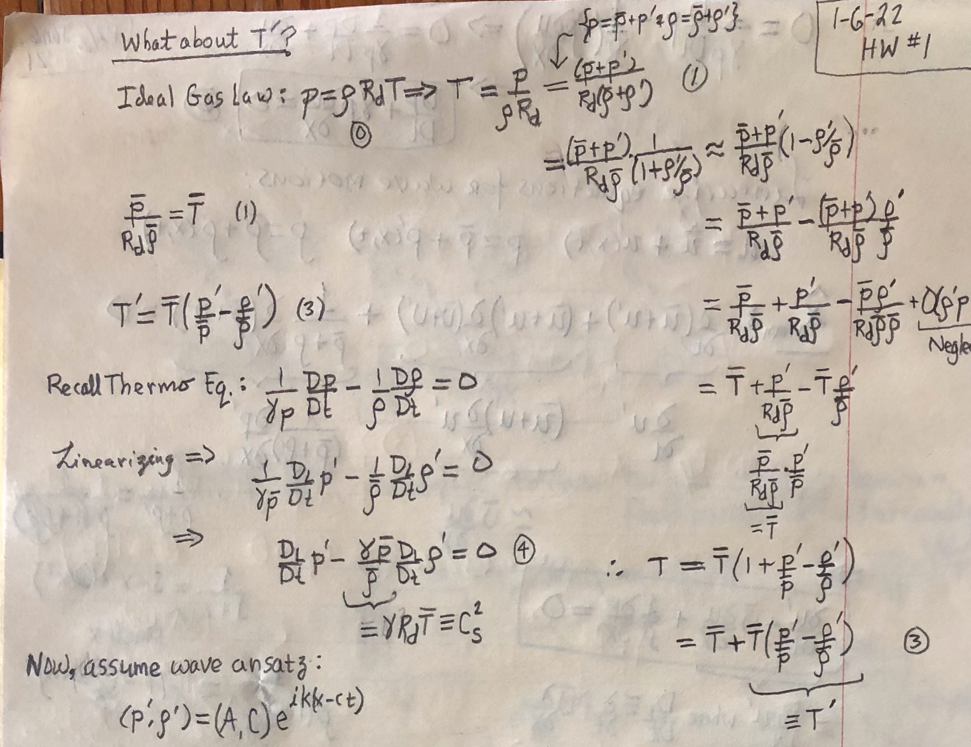 What about T'?
{p=p̄+p' & ρ=ρ̄+ρ'}
1-6-22
HW #1
Ideal Gas Law: p=ρR_dT => T = p/(ρR_d) = (p̄+p')/(R_d(ρ̄+ρ')) (1)
(0)
= (p̄+p')/(R_dρ̄) 1/(1+ρ'/ρ̄) ≈ (p̄+p')/(R_dρ̄) (1-ρ'/ρ̄)...
p̄/(R_dρ̄) = T̄ (1)
= (p̄+p')/(R_dρ̄) - (p̄+p')/(R_dρ̄) ρ'/ρ̄
T' = T̄(p'/p̄ - ρ'/ρ̄) (3)
= p̄/(R_dρ̄) + p'/(R_dρ̄) - p̄ρ'/(R_dρ̄ρ̄) + O(ρ'p
Neglec
Recall Thermo Eq.: 1/(γp) Dp/Dt - 1/ρ Dρ/Dt = 0
= T̄ + p'/(R_dρ̄) - T̄ρ'/ρ̄
p̄/(R_dρ̄) · p'/p̄
= T̄
Linearizing => 1/(γp̄) D_L/Dt p' - 1/ρ̄ D_L/Dt ρ' = 0
=> D_L/Dt p' - γp̄/ρ̄ D_L/Dt ρ' = 0 (4)
≡ γR_dT̄ ≡ C_s^2
∴ T = T̄(1 + p'/p̄ - ρ'/ρ̄)
= T̄ + T̄(p'/p̄ - ρ'/ρ̄) (3)
≡ T'
Now, assume wave ansatz:
(p',ρ') = (A,C)e^{ik(x-ct)}